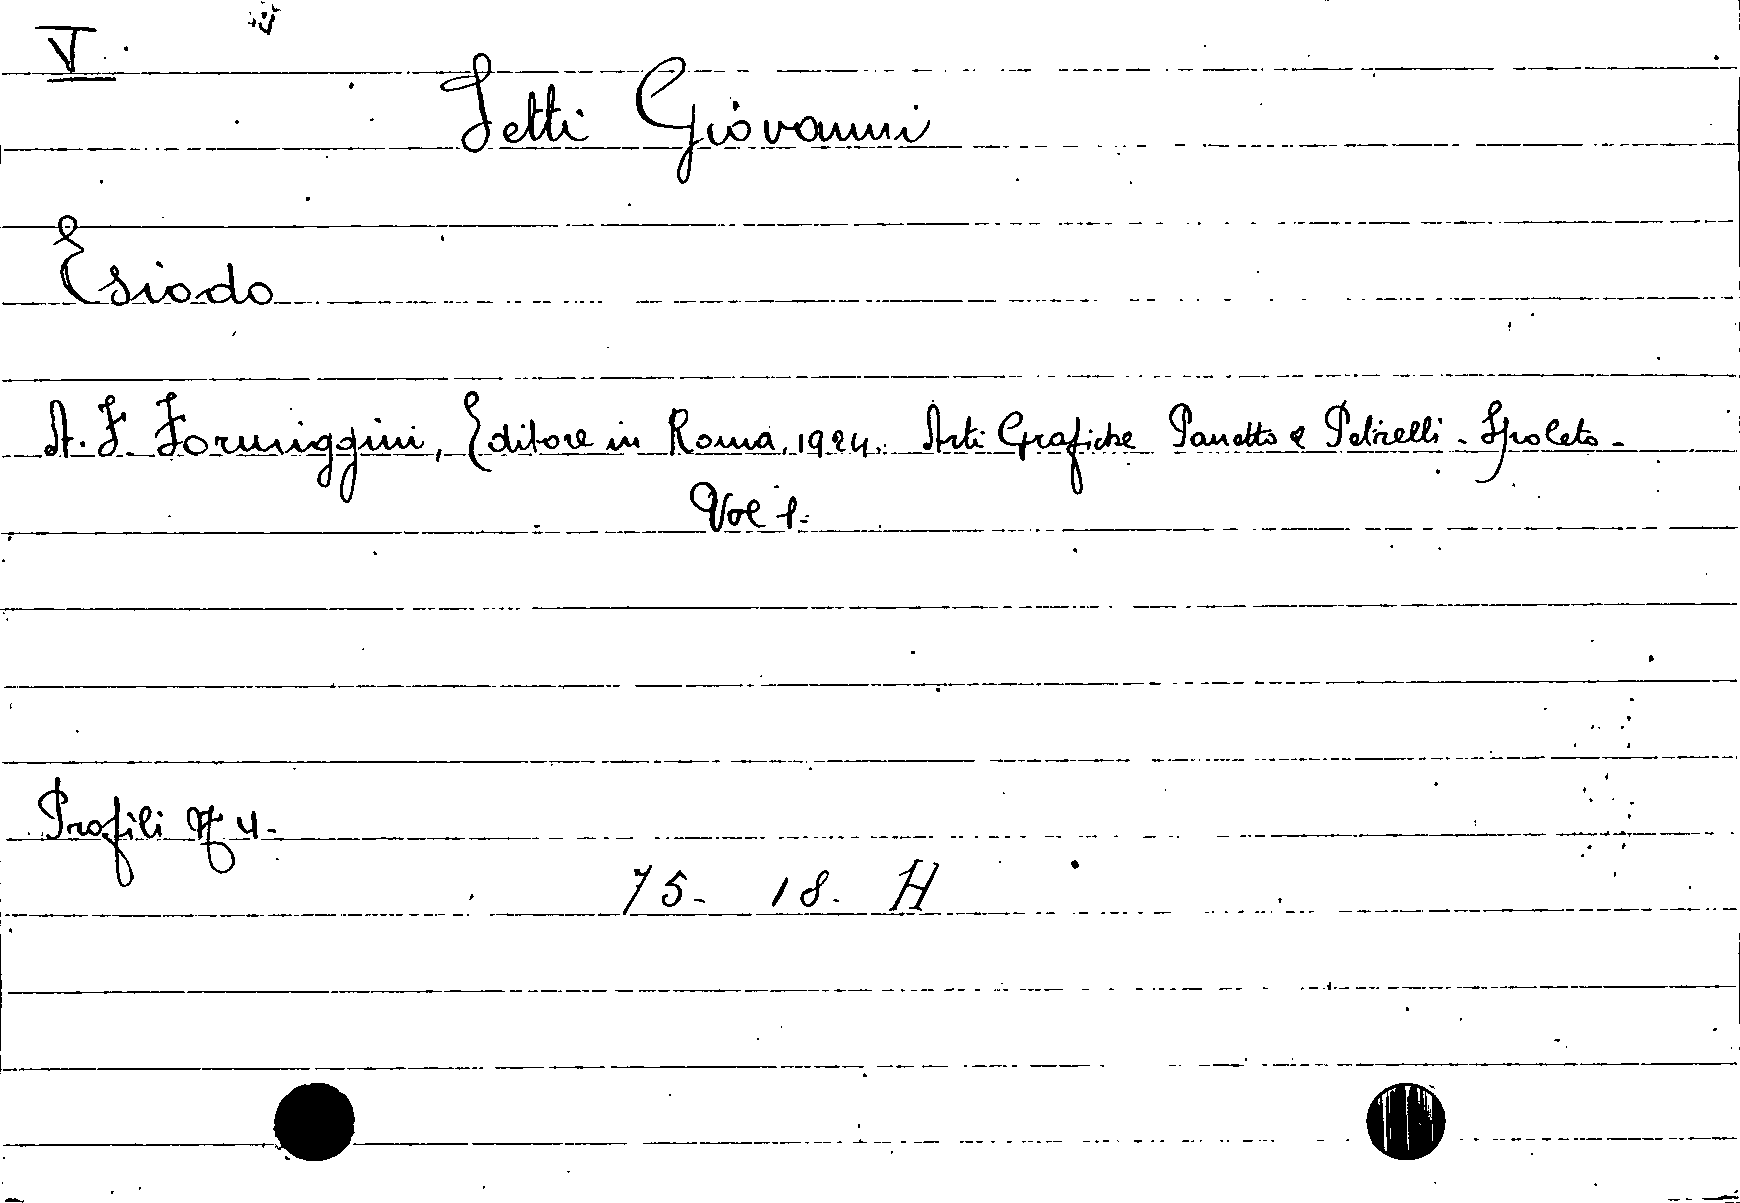 V
Setti Giovanni
Esiodo
A. F. Formiggini, Editore in Roma, 1924. Arti Grafiche Panetto e Petrelli - Spoleto -
Vol 1.
Profili N° 4 -
75 - 18. H